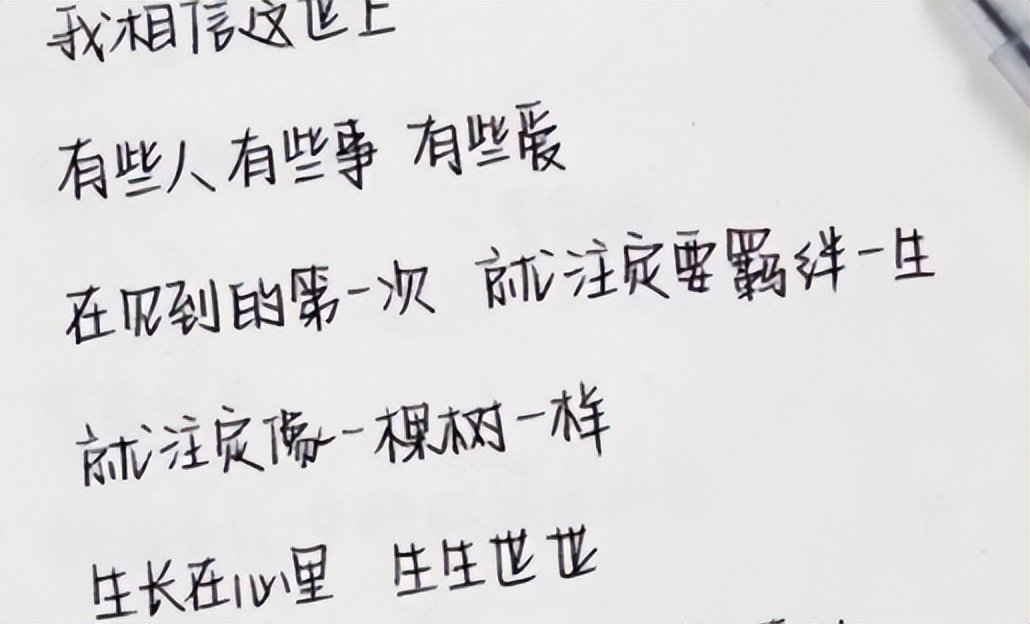 我相信这世上
有些人有些事 有些爱
在见到的第一次 就注定要羁绊一生
就注定像一棵树一样
生长在心里 生生世世